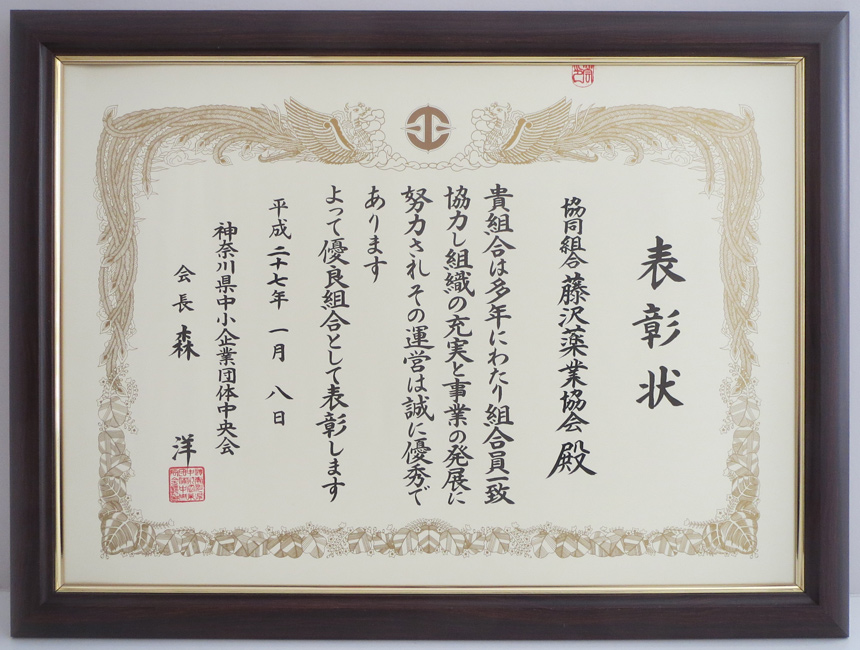 表彰状
協同組合 藤沢薬業協会 殿
貴組合は多年にわたり組合員一致
協力し組織の充実と事業の発展に
努力されその運営は誠に優秀で
あります
よって優良組合として表彰します
平成二十七年一月八日
神奈川県中小企業団体中央会
会長 森 洋